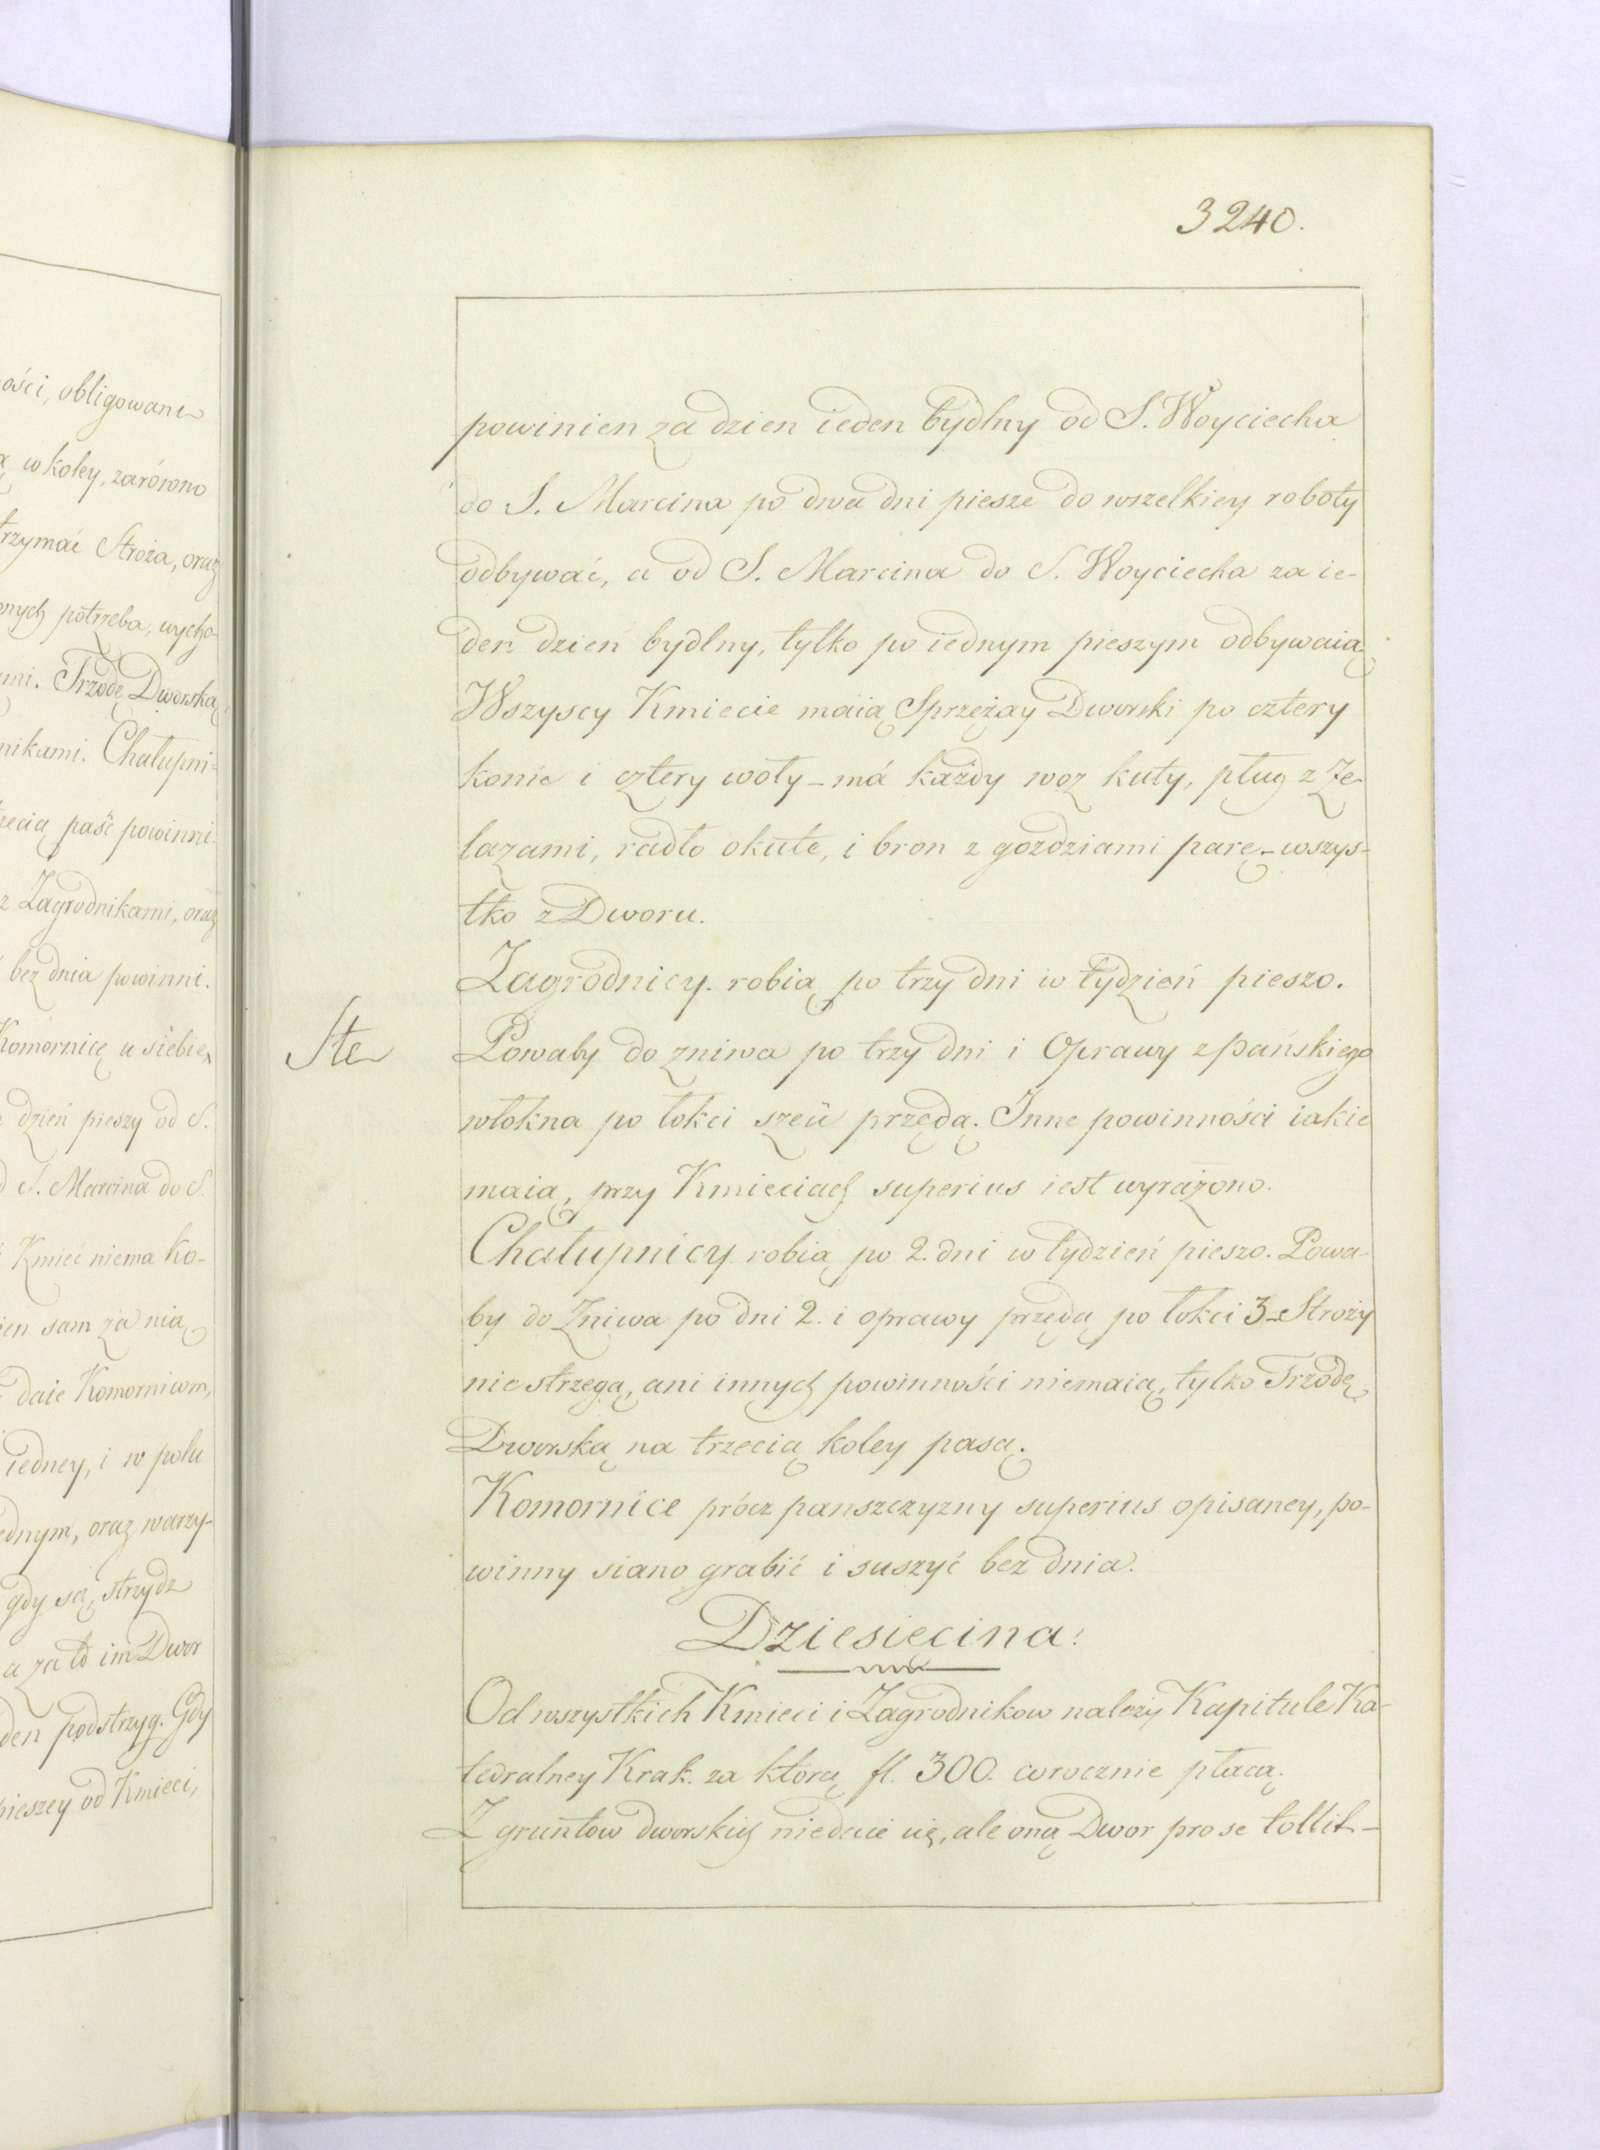 ości, obligowani
ą w koley, zarówno
trzymać Stroża, oraz
onych potrzeba, wycho-
ami. Trzodę Dworską
nikami. Chałupni-
trzecią paść powinni.
z Zagrodnikami, oraz
bez dnia powinni.
Komornicę u siebie
dzień pieszy od S.
d S. Marcina do S.
Kmieć niema ko-
ien sam za nią
daie Komornicom,
iedney, i w polu
ednym, oraz warzy-
gdy są, strzydz
a za to im Dwor
den podstrzyg. Gdy
pieszey od Kmieci,
3240.
powinien za dzien ieden bydlny od S. Woyciecha
do S. Marcina po dwa dni piesze do wszelkiey roboty
odbywać, a od S. Marcina do S. Woyciecha za ie-
den dzień bydlny, tylko po iednym pieszym odbywaią
Wszyscy Kmiecie maią Sprzężay Dworski po cztery
konie i cztery woły - má każdy woz kuty, pług z Że-
lazami, radło okute, i bron z gozdziami parę - wszys-
tko z Dworu.
Zagrodnicy. robią po trzy dni w tydzień pieszo.
Ste
Powaby do zniwa po trzy dni i Oprawy z pańskiego
włokna po łokci sześć przędą. Inne powinności iakie
maią, przy Kmieciach superius iest wyrażono.
Chałupnicy robią po 2. dni w tydzień pieszo. Powa-
by do Żniwa po dni 2. i oprawy przędą po łokci 3 - Stroży
nie strzegą, ani innych powinności niemaią, tylko Trzodę
Dworską na trzecią koley pasą.
Komornice prócz panszczyzny superius opisaney, po-
winny siano grabić i suszyć bez dnia.
Dziesięcina:
Od wszystkich Kmieci i Zagrodnikow należy Kapitule Ka-
tedralney Krak. za którą fl. 300. corocznie płacą.
Z gruntow dworskich niedaie się, ale oną Dwor pro se tollit -